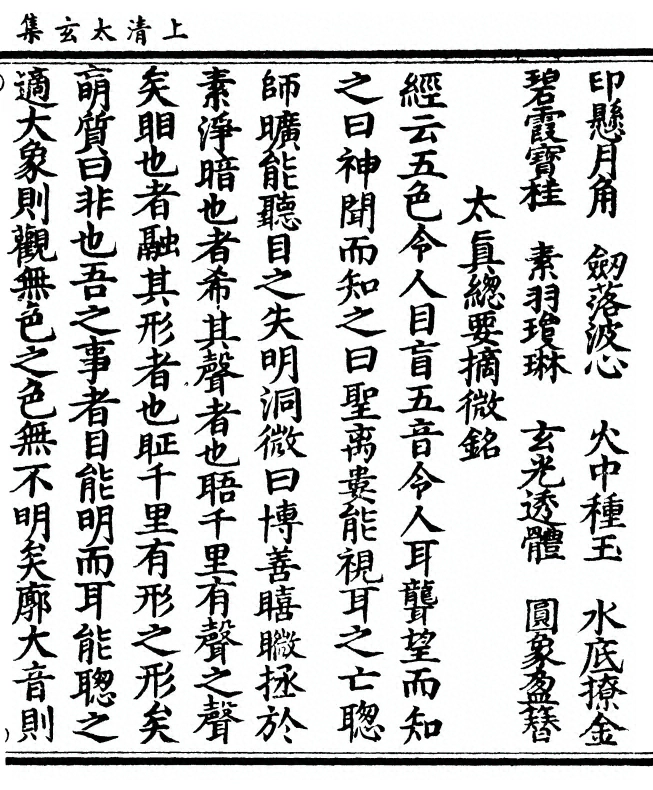 上清太玄集
印懸月角　劒落波心　火中種玉　水底撩金
碧霞寶桂　素羽琳　玄光透體　圓象盈簪
太眞總要摘微銘
經云五色令人目盲五音令人耳聾望而知
之曰神聞而知之曰聖离婁能視耳之亡聦
師曠能聽目之失明洞微曰博善瞦拯於
素淨暗也者希其聲者也聕千里有聲之聲
矣眀也者融其形者也眐千里有形之形矣
萌質曰非也吾之事者目能明而耳能聦之
適大象則觀無色之色無不明矣廓大音則